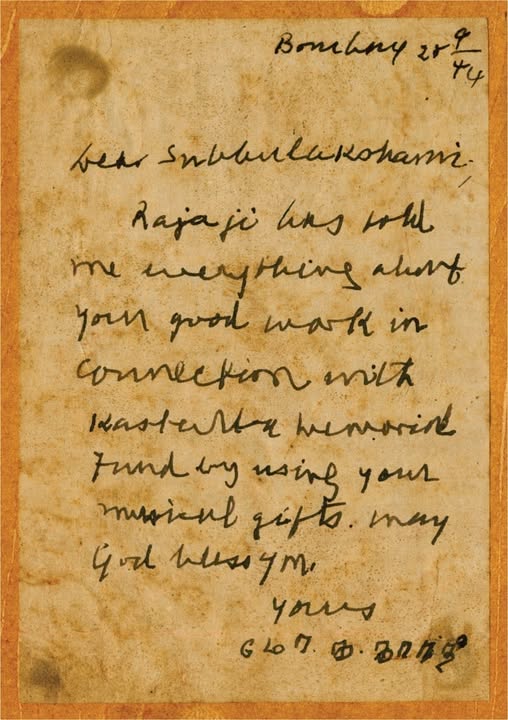 Bombay 28 9/44
Dear Subbulakshami,
Rajaji has told
me everything about
your good work in
connection with
Kasturba Memorial
Fund by using your
musical gifts. May
God bless you.
Yours